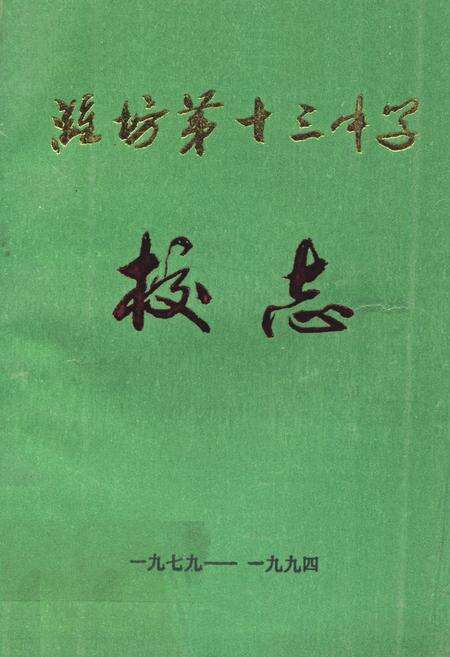 潍坊第十三中学
校志
一九七九——一九九四